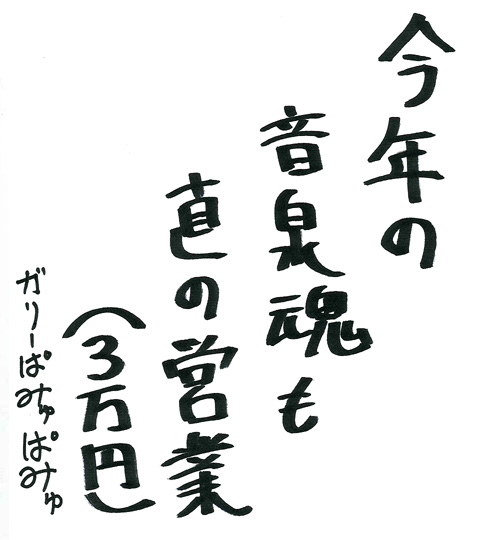 今年の
音泉魂も
直の営業
(3万円)
ガリーぱみゅぱみゅ